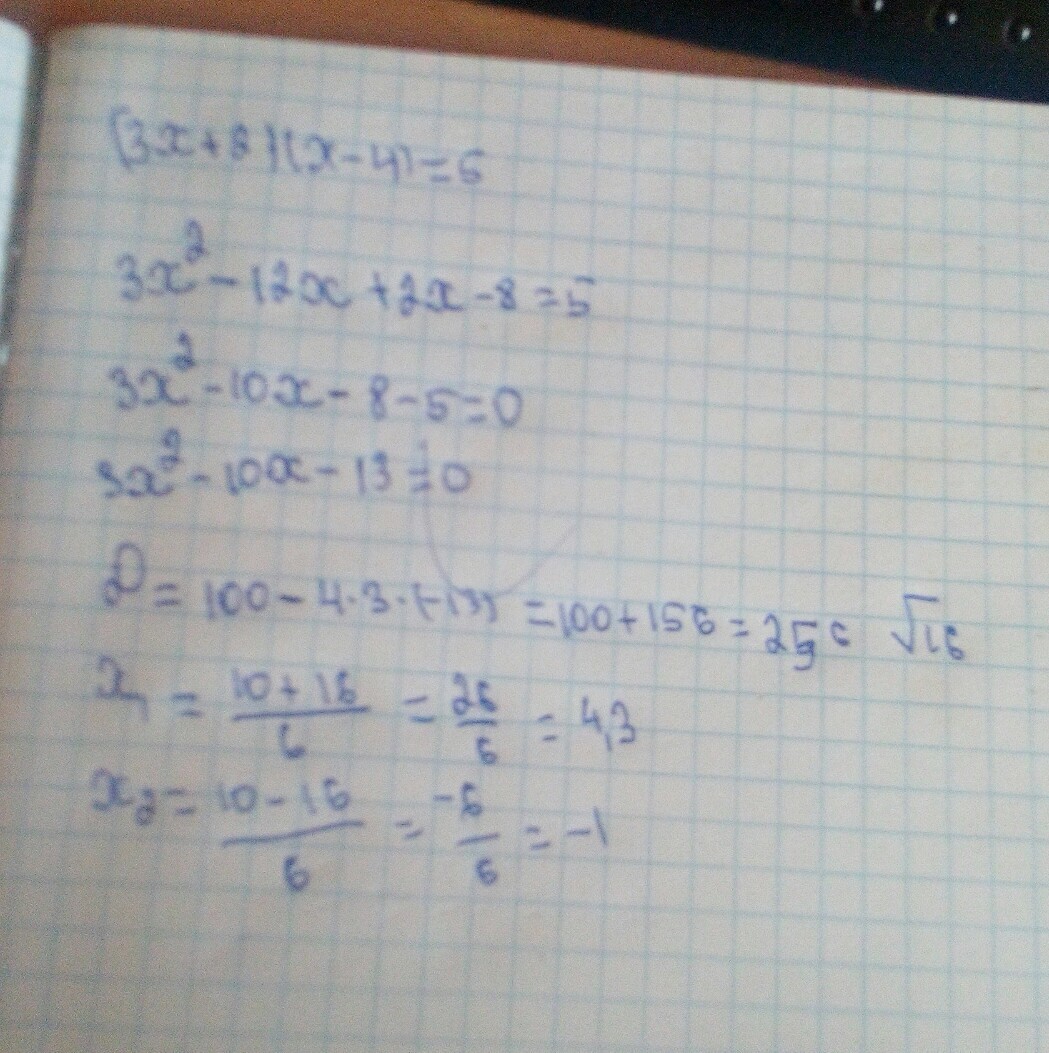 (3x+2)(x-4)=5
3x²-12x+2x-8=5
3x²-10x-8-5=0
3x²-10x-13=0
D=100-4·3·(-13)=100+156=256 √16
x₁=(10+16)/6=26/6=4,3
x₂=(10-16)/6=-6/6=-1